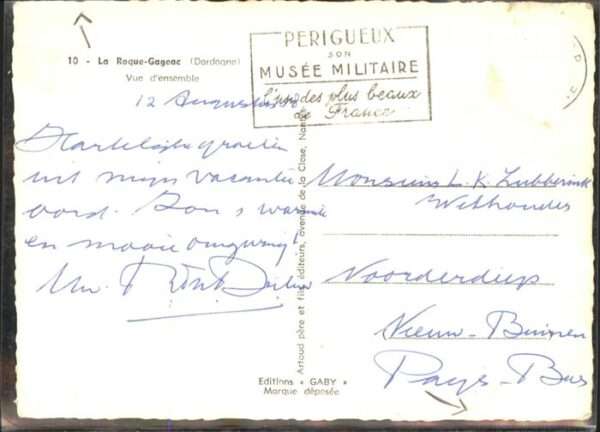 10 - La Roque-Gageac (Dordogne)
Vue d'ensemble
PERIGUEUX
SON
MUSÉE MILITAIRE
l'un des plus beaux
de France
12 Augustus
Hartelijke groeten
uit mijn vacantie
oord. Zon, warmte
en mooie omgeving!
Monsieur L. K. Lubberink
Wethouder
Noorderdiep
Nieuw-Buinen
Pays-Bas
Artaud père et fils éditeurs, avenue de la Close, Nantes
Editions « GABY »
Marque déposée